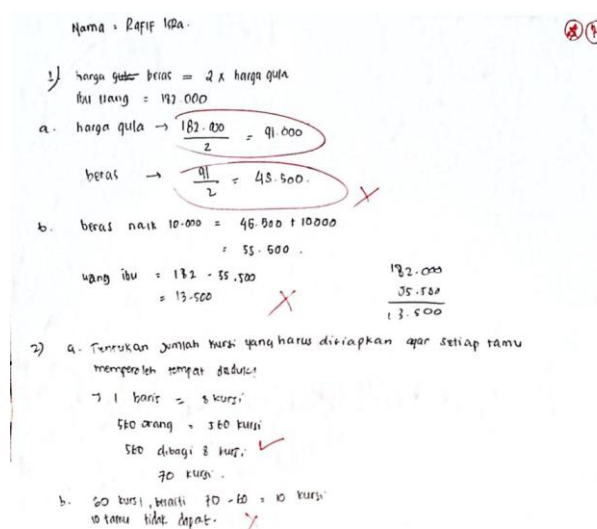 Nama : RAFIF ISRA.
1) harga gula beras = 2 x harga gula
Ibu uang = 182.000
a. harga gula → 182.000 / 2 = 91.000
beras → 91 / 2 = 45.500.
b. beras naik 10.000 = 45.500 + 10000
= 55.500.
uang ibu = 182 - 55.500
= 13.500
182.000
55.500
13.500
2) a. Tentukan jumlah kursi yang harus disiapkan agar setiap tamu
memperoleh tempat duduk!
→ 1 baris = 8 kursi
560 orang = 560 kursi
560 dibagi 8 kursi
70 kursi.
b. 60 kursi, berarti 70 - 60 = 10 kursi
10 tamu tidak dapat.